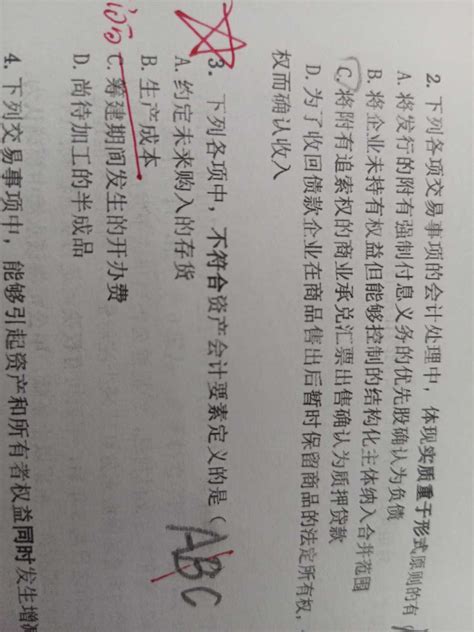 2. 下列各项交易事项的会计处理中，体现实质重于形式原则的有（
A. 将发行的附有强制付息义务的优先股确认为负债
B. 将企业未持有权益但能够控制的结构化主体纳入合并范围
C. 将附有追索权的商业承兑汇票出售确认为质押贷款
D. 为了收回债款企业在商品售出后暂时保留商品的法定所有权，
权而确认收入
3. 下列各项中，不符合资产会计要素定义的是（ ABC
A. 约定未来购入的存货
B. 生产成本
C. 筹建期间发生的开办费
D. 尚待加工的半成品
4. 下列交易事项中，能够引起资产和所有者权益同时发生增